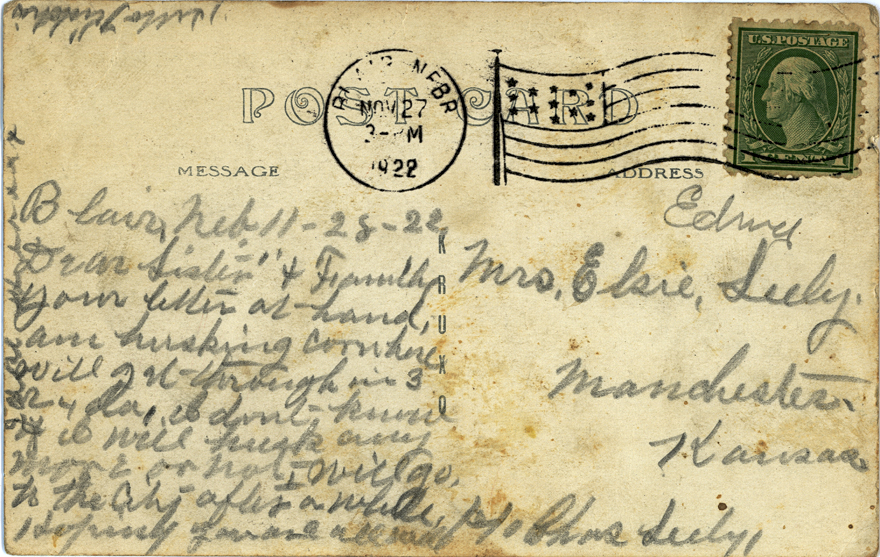 BLAIR NEBR
NOV 27
3-PM
1922
U.S. POSTAGE
POST CARD
MESSAGE
ADDRESS
KRUXO
Blair, Neb 11-28-22
Dear Sister" & Family
Your letter at hand,
am husking corn here
will get through in 3
or 4 da, I dont know
if I will husk any
more or not I will go,
to the City after a while,
Hoping you are all well
Edna
Mrs, Elsie, Seely.
Manchester
Kansas
c/o Chas Seely,